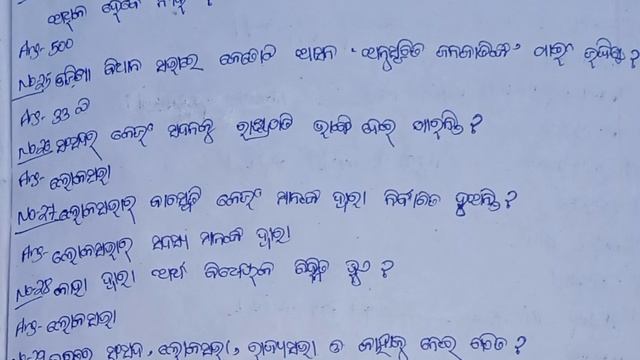 Ans- 500
No-25 ଓଡ଼ିଶା ବିଧାନ ସଭାରେ କେତୋଟି ଆସନ 'ଅନୁସୂଚିତ ଜନଜାତିଙ୍କ' ପାଇଁ ରହିଛି ?
Ans- 33 ଟି
No-26 ସଂସଦର କେଉଁ ସଦନକୁ ରାଷ୍ଟ୍ରପତି ଭାଙ୍ଗି ଦେଇ ପାରନ୍ତି ?
Ans- ଲୋକସଭା
No-27 ଲୋକସଭାର ବାଚସ୍ପତି କେଉଁ ମାନଙ୍କ ଦ୍ୱାରା ନିର୍ବାଚିତ ହୁଅନ୍ତି ?
Ans- ଲୋକସଭାର ସଦସ୍ୟ ମାନଙ୍କ ଦ୍ୱାରା
No-28 କାହା ଦ୍ୱାରା ଅର୍ଥ ବିଧେୟକ ହୁଏ ?
Ans- ଲୋକସଭା
ସଂସଦ, ଲୋକସଭା, ରାଜ୍ୟସଭା ଓ କାହାକୁ ନେଇ ଗଠିତ ?